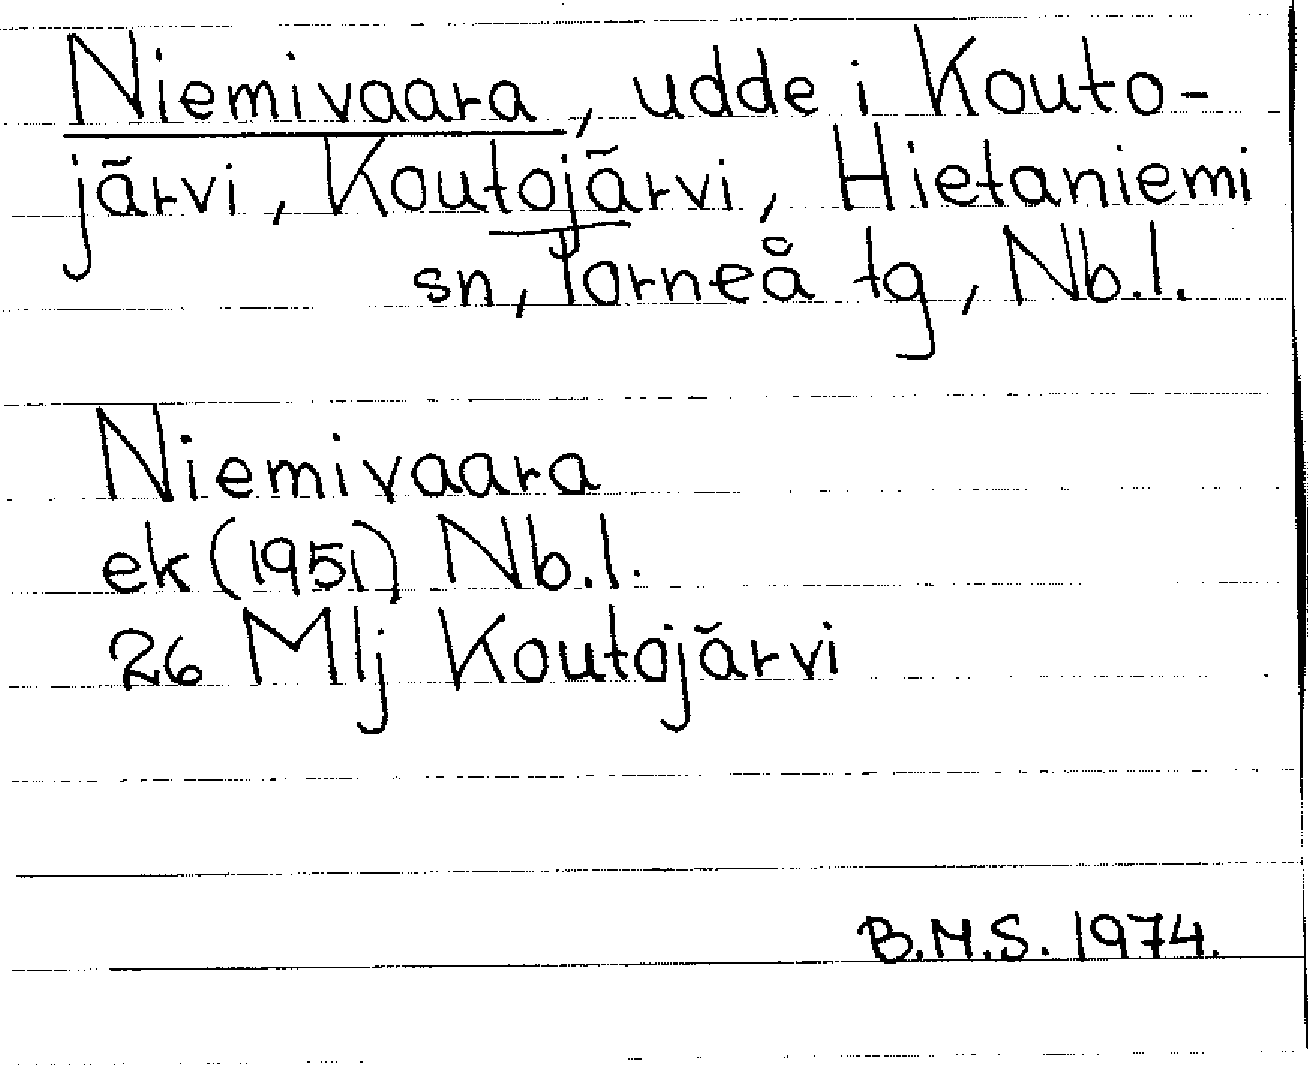 Niemivaara, udde i Kouto-
järvi, Koutojärvi, Hietaniemi
sn, Torneå tg, Nb.l.
Niemivaara
ek (1951) Nb.l.
26 Mlj Koutojärvi
B.M.S. 1974.